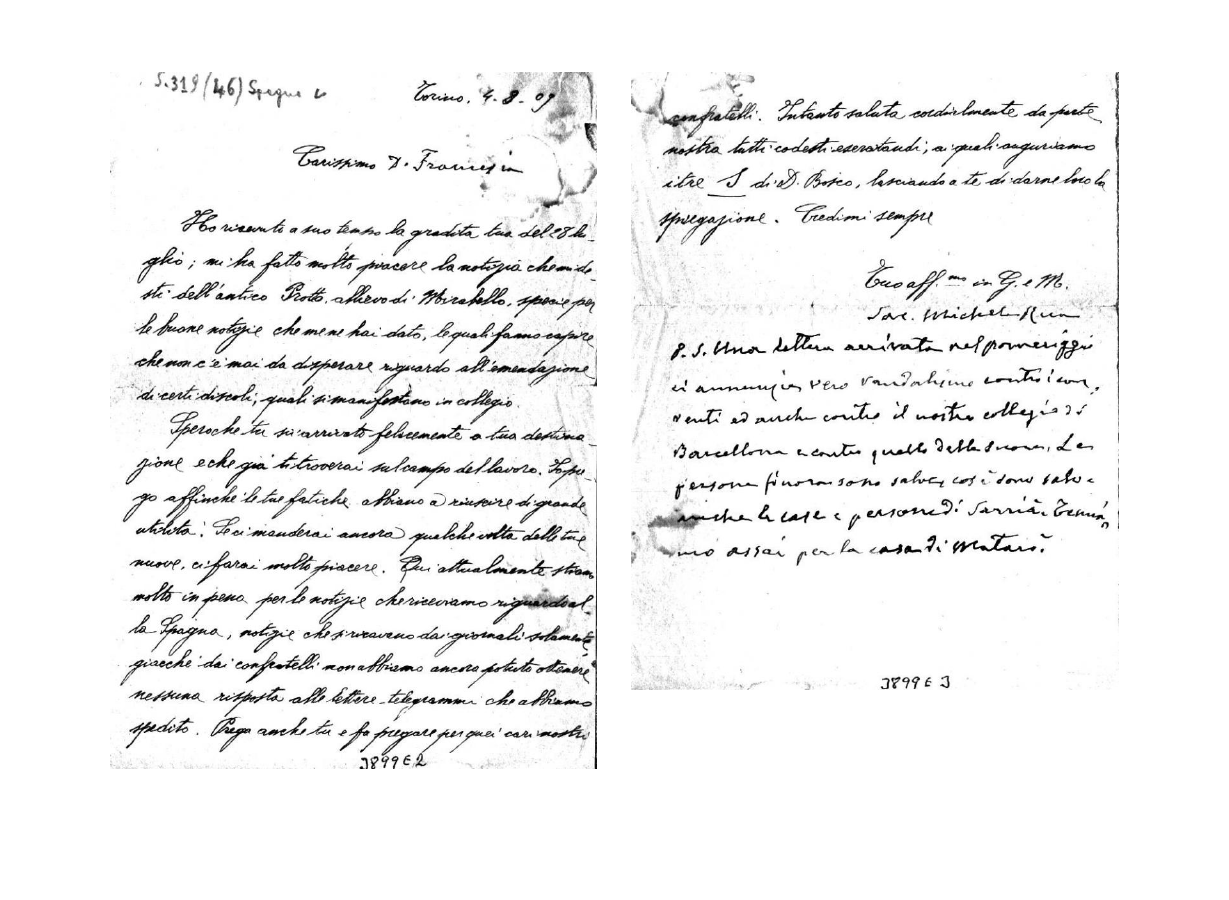 S.319 (46) Spagna
Torino, 4-8-09
Carissimo D. Francesia
Ho ricevuto a suo tempo la gradita tua del 28 lu-
glio; mi ha fatto molto piacere la notizia che mi de-
sti dell'antico Protto, allievo di Mirabello, specie per
le buone notizie che me ne hai dato, le quali fanno capire
che non c'è mai da disperare riguardo all'emendazione
di certi discoli, quali si manifestano in collegio.
Spero che tu sii arrivato felicemente a tua destina-
zione e che già ti troverai sul campo del lavoro. Io pre-
go affinchè le tue fatiche abbiano a riuscire di grande
utilità. Se ci manderai ancora qualche volta delle tue
nuove, ci farai molto piacere. Qui attualmente stiamo
molto in pena per le notizie che riceviamo riguardo al-
la Spagna, notizie che si ricavano dai giornali solamente,
giacchè dai confratelli non abbiamo ancora potuto ottenere
nessuna risposta alle lettere-telegrammi che abbiamo
spedito. Prega anche tu e fa pregare per quei cari nostri
3899 E 2
confratelli. Intanto saluta cordialmente da parte
nostra tutti codesti esercitandi, ai quali auguriamo
i tre S di D. Bosco, lasciando a te di darne loro la
spiegazione. Credimi sempre
Tuo aff.mo in G. e M.
Sac. Michele Rua
P. S. Una lettera arrivata nel pomeriggio
ci annunzia vero vandalismo contro i con-
venti ed anche contro il nostro collegio di
Barcellona e contro quello delle Suore. Le
persone finora sono salve, così sono salve
anche le case e persone di Sarrià. Temia-
mo assai per la casa di Matarò.
3899 E 3